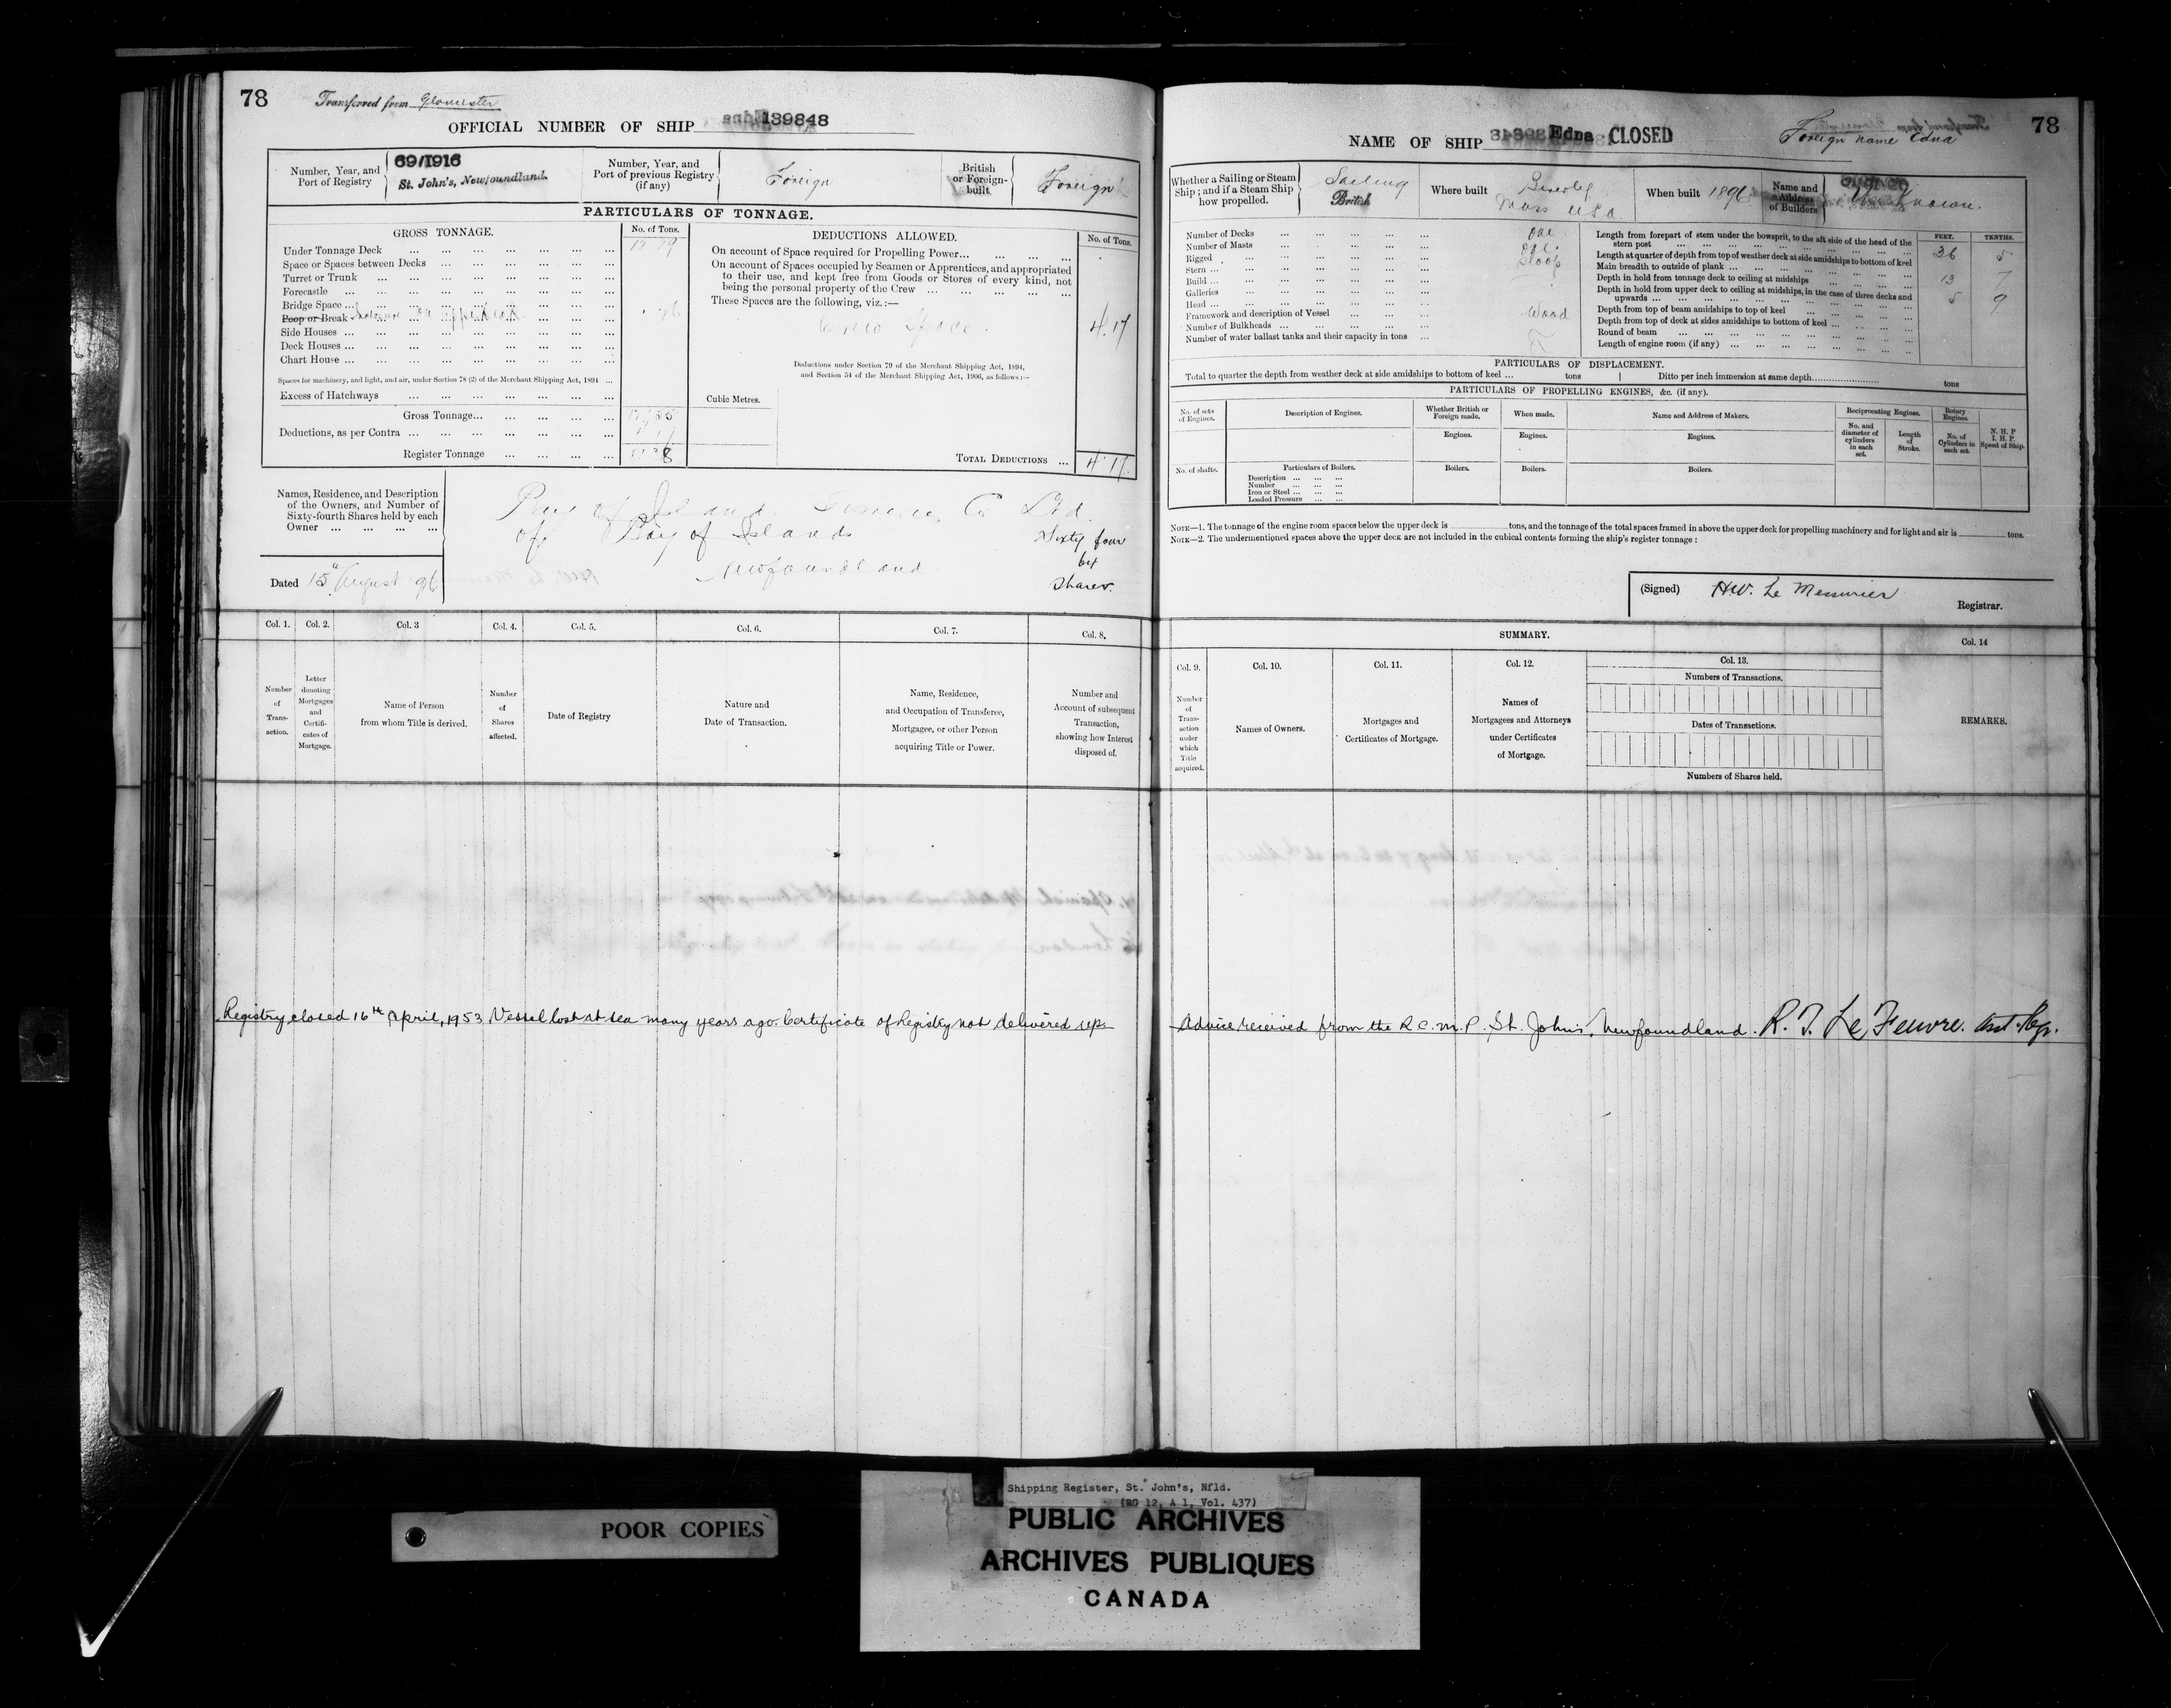 78
Transferred from Gloucester
OFFICIAL NUMBER OF SHIP 139848
Number, Year, and Port of Registry
69/1916
St. John's, Newfoundland.
Number, Year, and Port of previous Registry (if any)
Foreign
British or Foreign-built.
Foreign
PARTICULARS OF TONNAGE.
GROSS TONNAGE.
No. of Tons.
Under Tonnage Deck
Space or Spaces between Decks
Turret or Trunk
Forecastle
Bridge Space
Poop or Break
Side Houses
Deck Houses
Chart House
Spaces for machinery, and light, and air, under Section 78 (2) of the Merchant Shipping Act, 1894
Excess of Hatchways
Gross Tonnage
Deductions, as per Contra
Register Tonnage
DEDUCTIONS ALLOWED.
No. of Tons.
On account of Space required for Propelling Power
On account of Spaces occupied by Seamen or Apprentices, and appropriated
to their use, and kept free from Goods or Stores of every kind, not
being the personal property of the Crew
These Spaces are the following, viz.:—
Crew Space. 4.17
Deductions under Section 79 of the Merchant Shipping Act, 1894,
and Section 54 of the Merchant Shipping Act, 1906, as follows:—
Cubic Metres.
TOTAL DEDUCTIONS ... 4.17
Names, Residence, and Description
of the Owners, and Number of
Sixty-fourth Shares held by each
Owner
Co Ltd.
of Bay of Islands
Newfoundland
Sixty four
Shares.
Dated 15 August
Col. 1.
Number of Transaction.
Col. 2.
Letter denoting Mortgages and Certificates of Mortgage.
Col. 3
Name of Person from whom Title is derived.
Col. 4.
Number of Shares affected.
Col. 5.
Date of Registry
Col. 6.
Nature and Date of Transaction.
Col. 7.
Name, Residence, and Occupation of Transferee, Mortgagee, or other Person acquiring Title or Power.
Col. 8.
Number and Account of subsequent Transaction, showing how Interest disposed of.
Registry closed 16th April, 1953 Vessel lost at sea many years ago. Certificate of Registry not delivered up.
78
NAME OF SHIP Edna CLOSED
Foreign name Edna
Whether a Sailing or Steam Ship; and if a Steam Ship how propelled.
Sailing
British
Where built
Beverley
Mass USA
When built 1896
Name and Address of Builders
Unknown.
Number of Decks One
Number of Masts One
Rigged Sloop
Stern
Build
Galleries
Head
Framework and description of Vessel Wood
Number of Bulkheads
Number of water ballast tanks and their capacity in tons
FEET. TENTHS.
Length from forepart of stem under the bowsprit, to the aft side of the head of the stern post 36 5
Length at quarter of depth from top of weather deck at side amidships to bottom of keel
Main breadth to outside of plank 13 7
Depth in hold from tonnage deck to ceiling at midships 5 9
Depth in hold from upper deck to ceiling at midships, in the case of three decks and upwards
Depth from top of beam amidships to top of keel
Depth from top of deck at sides amidships to bottom of keel
Round of beam
Length of engine room (if any)
PARTICULARS OF DISPLACEMENT.
Total to quarter the depth from weather deck at side amidships to bottom of keel ... tons | Ditto per inch immersion at same depth tons
PARTICULARS OF PROPELLING ENGINES, &c. (if any).
No. of sets of Engines.
Description of Engines.
Whether British or Foreign made.
When made.
Name and Address of Makers.
Reciprocating Engines.
Rotary Engines.
N. H. P
I. H. P.
Speed of Ship.
Engines. Engines. Engines.
No. and diameter of cylinders in each set.
Length of Stroke.
No. of Cylinders in each set.
No. of shafts.
Particulars of Boilers.
Boilers. Boilers. Boilers.
Description
Number
Iron or Steel
Loaded Pressure
NOTE—1. The tonnage of the engine room spaces below the upper deck is tons, and the tonnage of the total spaces framed in above the upper deck for propelling machinery and for light and air is tons.
NOTE—2. The undermentioned spaces above the upper deck are not included in the cubical contents forming the ship's register tonnage:
(Signed) H.W. Le Messurier
Registrar.
SUMMARY.
Col. 9.
Number of Transaction under which Title acquired.
Col. 10.
Names of Owners.
Col. 11.
Mortgages and Certificates of Mortgage.
Col. 12.
Names of Mortgagees and Attorneys under Certificates of Mortgage.
Col. 13.
Numbers of Transactions.
Dates of Transactions.
Numbers of Shares held.
Col. 14
REMARKS.
Advice received from the R.C.M.P. St. John's, Newfoundland. R. T. Le Feuvre. Asst. Regr.
POOR COPIES
Shipping Register, St. John's, Nfld.
(RG 12, A 1, Vol. 437)
PUBLIC ARCHIVES
ARCHIVES PUBLIQUES
CANADA